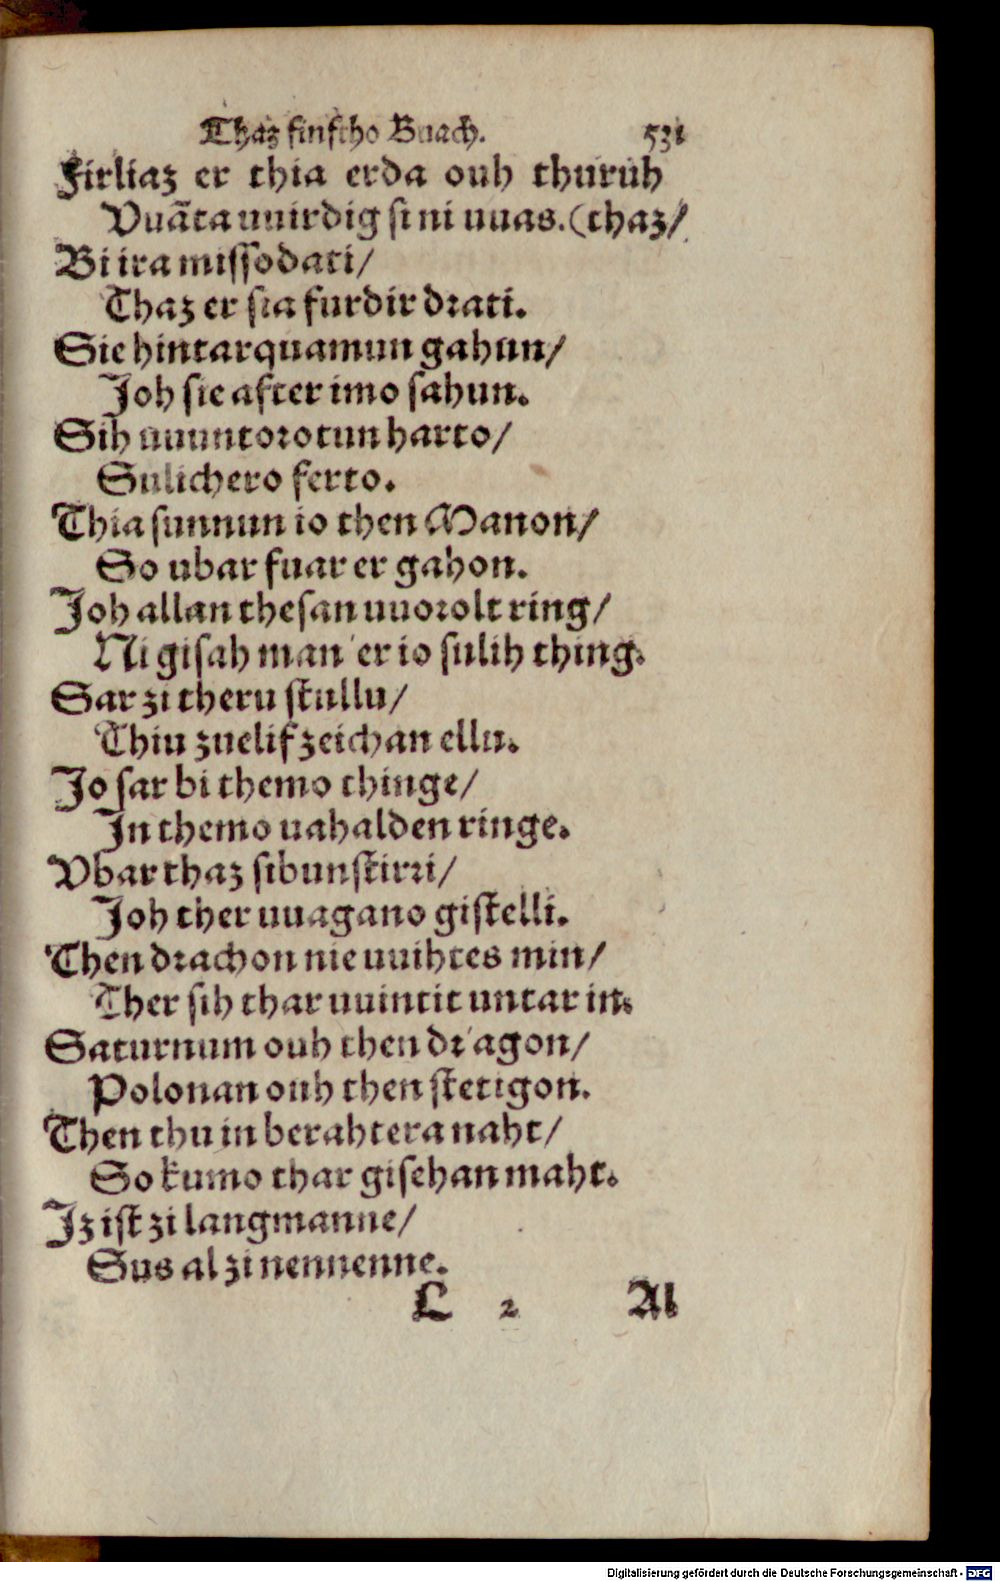 Thaz finftho Buach. 531
Firliaz er thia erda ouh thuruh
Vuãta uuirdig si ni uuas. (thaz/
Bi ira missodati/
Thaz er sia furdir drati.
Sie hintarquamun gahun/
Joh sie after imo sahun.
Sih uuuntorotun harto/
Sulichero ferto.
Thia sunnun io then Manon/
So ubar fuar er gahon.
Joh allan thesan uuorolt ring/
Ni gisah man er io sulih thing.
Sar zi theru stullu/
Thiu zuelif zeichan ellu.
Jo sar bi themo thinge/
In themo uahalden ringe.
Vbar thaz sibunstirri/
Joh ther uuagano gistelli.
Then drachon nie uuihtes min/
Ther sih thar uuintit untar in.
Saturnum ouh then dragon/
Polonan ouh then stetigon.
Then thu in berahtera naht/
So kumo thar gisehan maht.
Iz ist zi langmanne/
Sus al zi nennenne.
L 2 Al
Digitalisierung gefördert durch die Deutsche Forschungsgemeinschaft - DFG